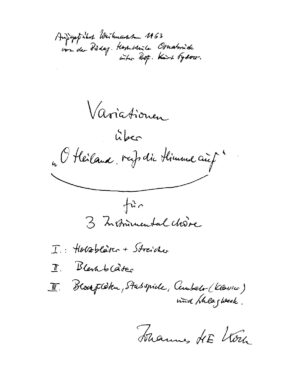 Aufgeführt Weihnachten 1963
von der Pädag. Hochschule Osnabrück
unter Prof. Kurt Sydow.
Variationen
über
„O Heiland, reiß die Himmel auf“
für
3 Instrumentalchöre
I.: Holzbläser + Streicher
II. Blechbläser
III. Blockflöten, Stabspiele, Cembalo (Klavier)
und Schlagwerk.
Johannes H E Koch